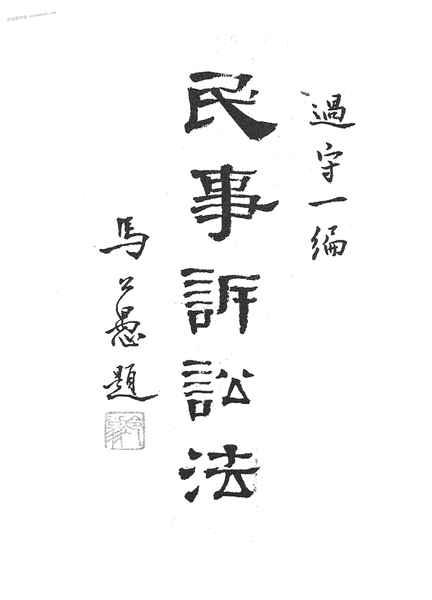 過守一編
民事訴訟法
馬公愚題